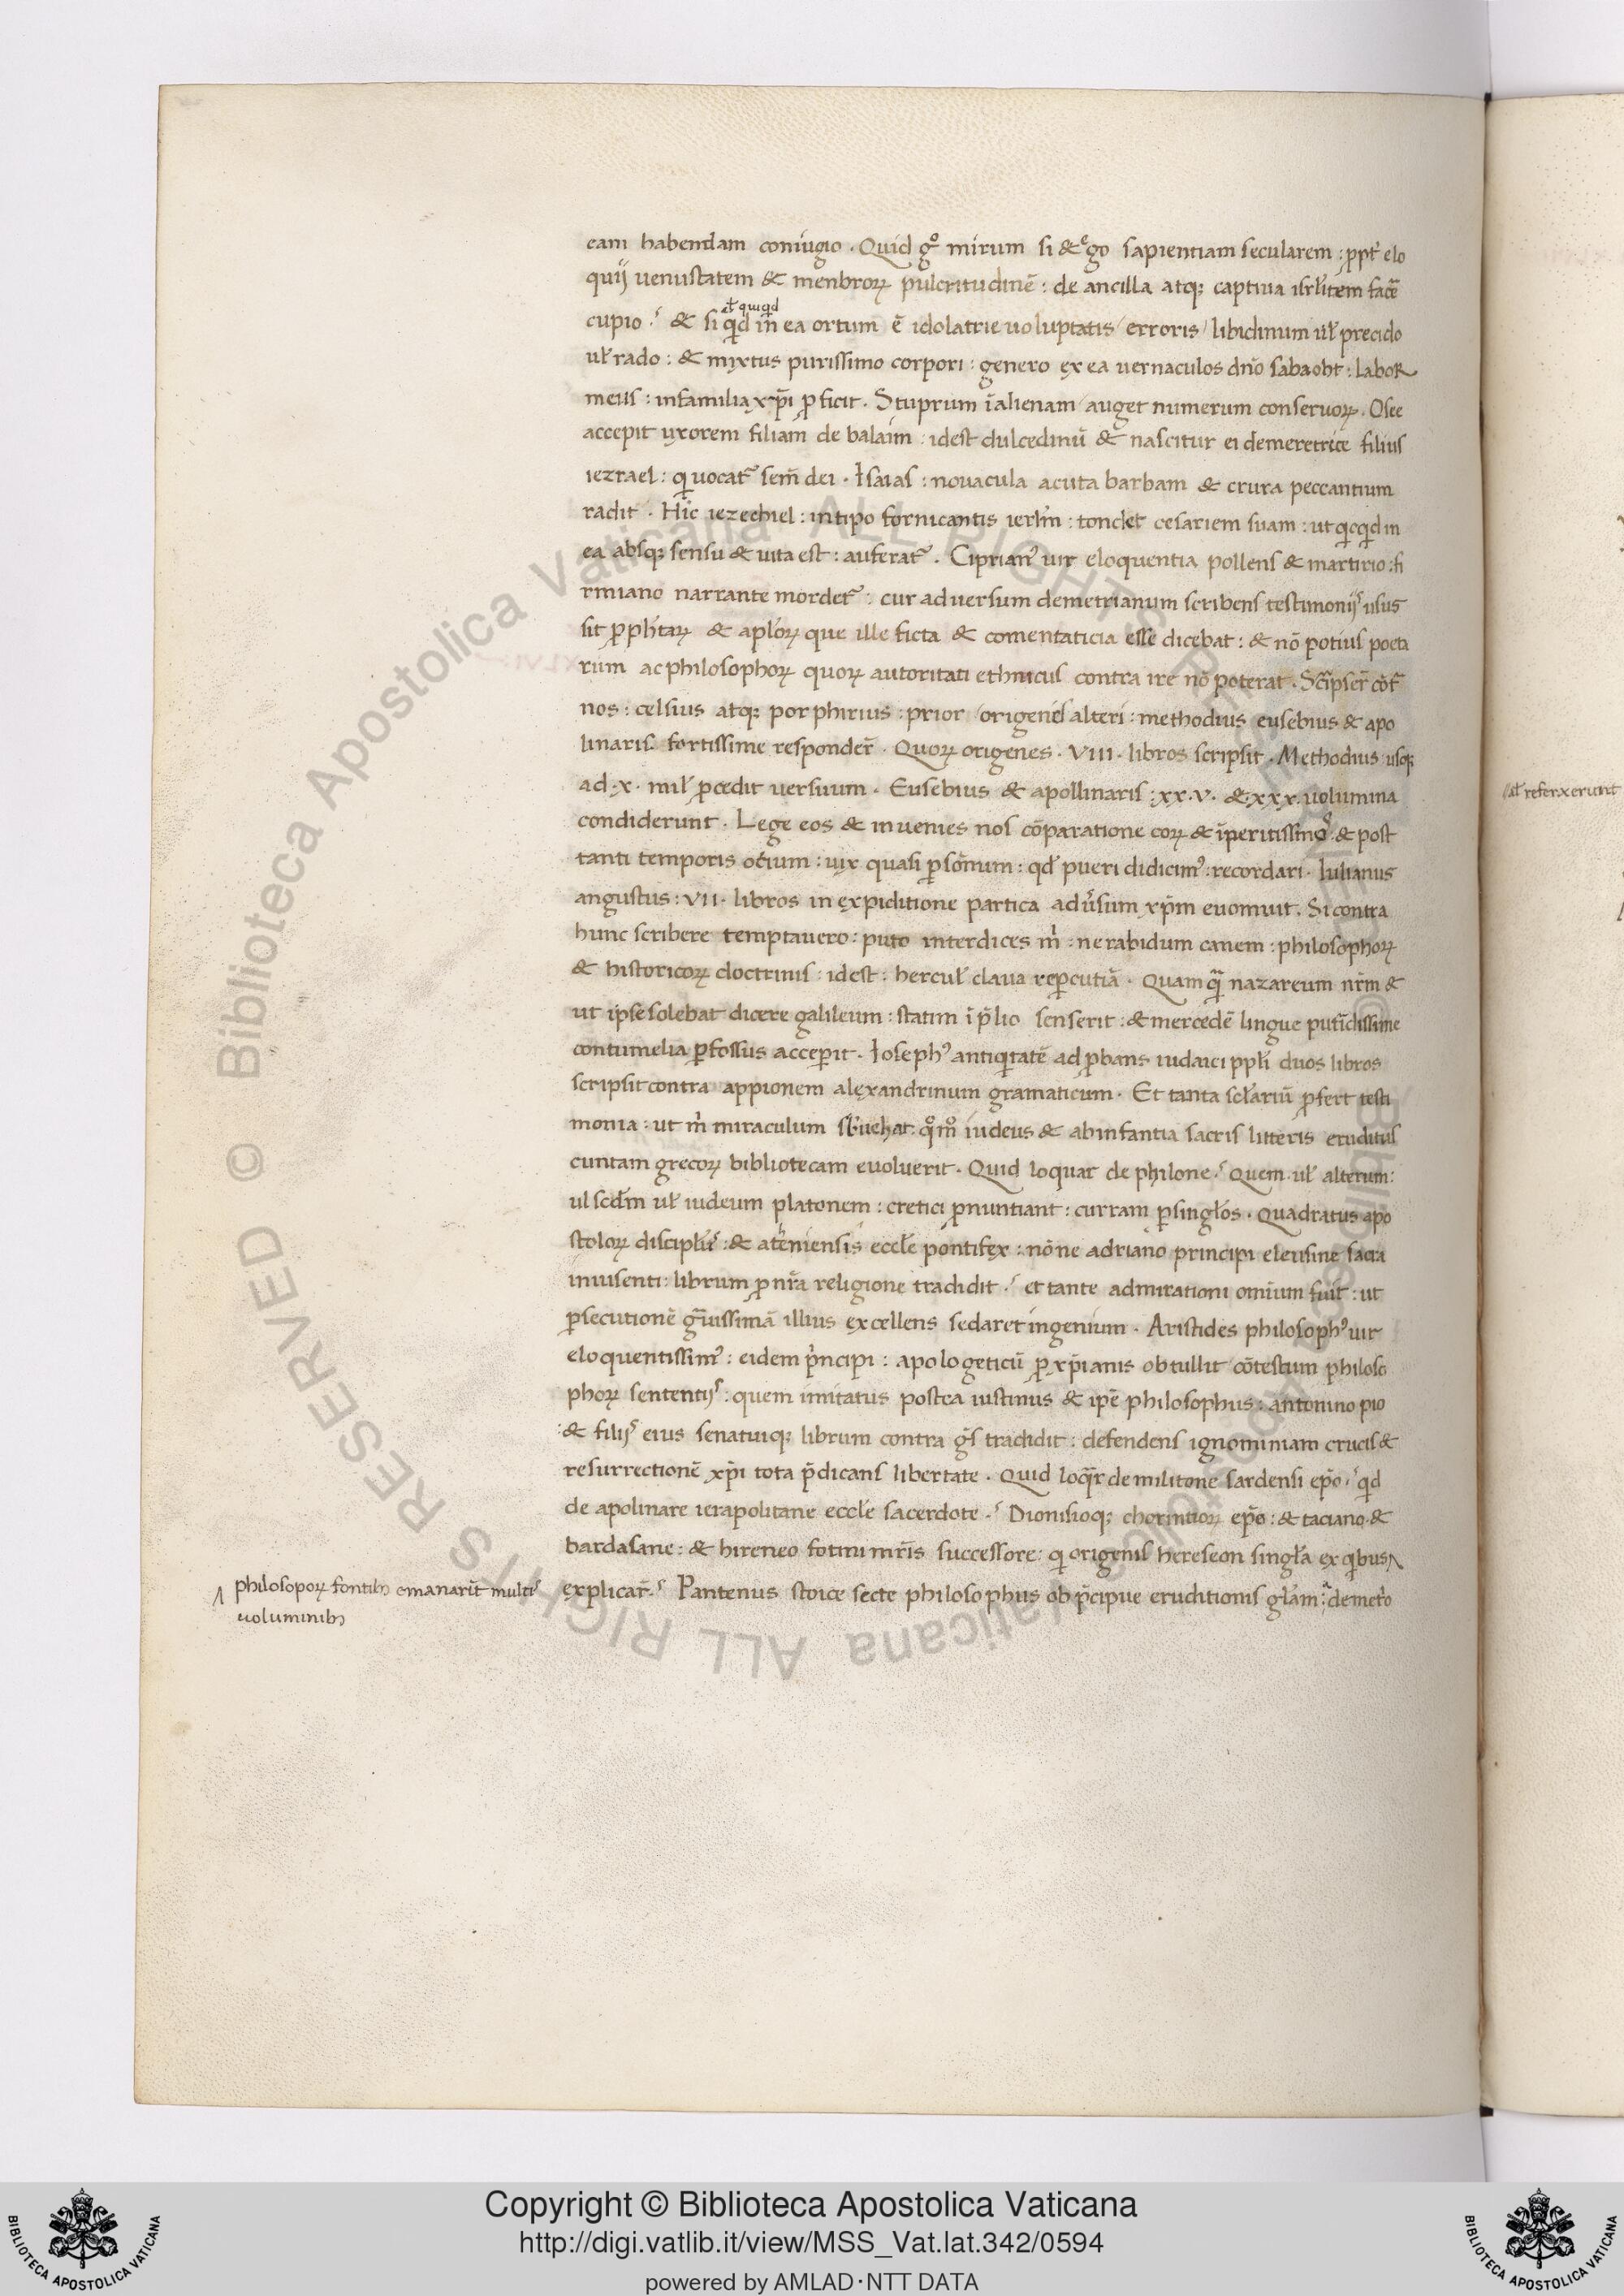 eam habendam coniugio. Quid gͦ mirum si & ego sapientiam secularem: ꝓpt̃ elo
quij uenustatem & menbroꝝ pulcritudinẽ: de ancilla atqꝫ captiua isrl̃item facẽ
al̃ quicqd
cupio? & si qͥd in ea ortum ẽ idolatrie uoluptatis/ erroris/ libidinum ul̃ precido
ul̃ rado: & myxtus purissimo corpori: genero ex ea uernaculos dño sabaoht: labor
meus: in familia xp̃i ꝓficit. Stuprum ĩ alienam/ auget numerum conseruoꝝ. Osee
accepit uxorem filiam de balaim: idest dulcedinũ & nascitur ei de meretrice filius
iezrael: qͥ uocat᷑ sem̃ dei. Isaias: nouacula acuta barbam & crura peccantium
radit. Hic iezechiel: in tipo fornicantis ierl̃m: tondet cesariem suam: ut qͥcqͥd in
ea absqꝫ sensu & uita est: auferat᷑. Ciprianꝰ uir eloquentia pollens & martirio: fi
rmiano narrante mordet᷑: cur aduersum demetrianum scribens testimonijs usus
sit ꝓph̃taꝝ & apl̃oꝝ que ille ficta & comentaticia esse dicebat: & nõ potius poeta
rum ac philosophoꝝ quoꝝ autoritati ethnicus contra ire nõ poterat. Scͥpser̃ cõt᷑
nos: celsius atqꝫ porphirius: prior/ origenes alteri: methodius eusebius & apo
linaris fortissime responder̃. Quoꝝ origenes. VIII. libros scripsit. Methodius usqꝫ
ad. x. mil̃ ꝓcedit uersuum. Eusebius & apollinaris: xx.v. &. xxx. uolumina
condiderunt. Lege eos & inuenies nos cõparatione eoꝝ & ĩperitissimoˢ. & post
tanti temporis otium: uix quasi ꝑ sõmnum: qd̃ pueri didicimꝰ: recordari. Iulianus
angustus: VII. libros in expiditione partica adũsum xp̃m euomuit. Si contra
hunc scribere temptauero: puto interdices mͥ: ne rabidum canem: philosophoꝝ
& historicoꝝ doctrinis: idest: hercul̃ claua reꝑcutiã. Quamqᷓ nazareum nr̃m &
ut ipse solebat dicere galileum: statim ĩ p̃lio senserit: & mercedẽ lingue putidissime
contumelia ꝑfossus acceperit. Iosephꝰ antiqͥtatẽ adꝓbans iudaici ppl̃i duos libros
scripsit contra appionem alexandrinum gramaticum. Et tanta scl̃ariũ ꝓfert testi
monia: ut mͥ miraculum sb̃uehat: qͦmͦ iudeus & ab infantia sacris litteris eruditus
cuntam grecoꝝ bibliotecam euoluerit. Quid loquar de philone? Quem. ul̃ alterum:
ul scd̃m ul̃ iudeum platonem: cretici ꝓnuntiant: curram ꝑ singl̃os. Quadratus apo
stoloꝝ discipl̃us: & atheniensis eccl̃e pontifex: nõne adriano principi eleusine sacra
inuisenti: librum ꝓ nr̃a religione tradidit? et tante admirationi omium fuit: ut
ꝑsecutionẽ gᷓuissimã illius excellens sedaret ingenium. Aristides philosophꝰ uir
eloquentissimꝰ: eidem pͥncipi: apologeticũ ꝓ xp̃ianis obtullit cõtestum philoso
phoꝝ sententijs: quem imitatus postea iustinus & ipẽ philosophus: antonino pio
& filijs eius senatuiqꝫ librum contra gˢ tradidit: defendens ignominiam crucis &
resurrectionẽ xp̃i tota p̃dicans libertate. Quid loqᷓr de militone sardensi ep̃o? qͥd
de apolinare ierapolitane eccl̃e sacerdote? Dionisioqꝫ chorintioꝝ ep̃o: & taciano. &
bardasane: & hireneo fotini mr̃is successore: qͥ origenis hereseon singl̃a ex qͥbus ʌ
explicar̃? Pantenus stoice secte philosophus ob p̃cipue eruditionis gl̃am: a demet̃o
ʌ philosopoꝝ fontibꝫ emanarĩt multis
uoluminibꝫ
al̃ referxerunt
Copyright © Biblioteca Apostolica Vaticana
http://digi.vatlib.it/view/MSS_Vat.lat.342/0594
powered by AMLAD·NTT DATA
BIBLIOTECA APOSTOLICA VATICANA
BIBLIOTECA APOSTOLICA VATICANA
© Biblioteca Apostolica Vaticana ALL RIGHTS RESERVED
© Biblioteca Apostolica Vaticana ALL RIGHTS RESERVED